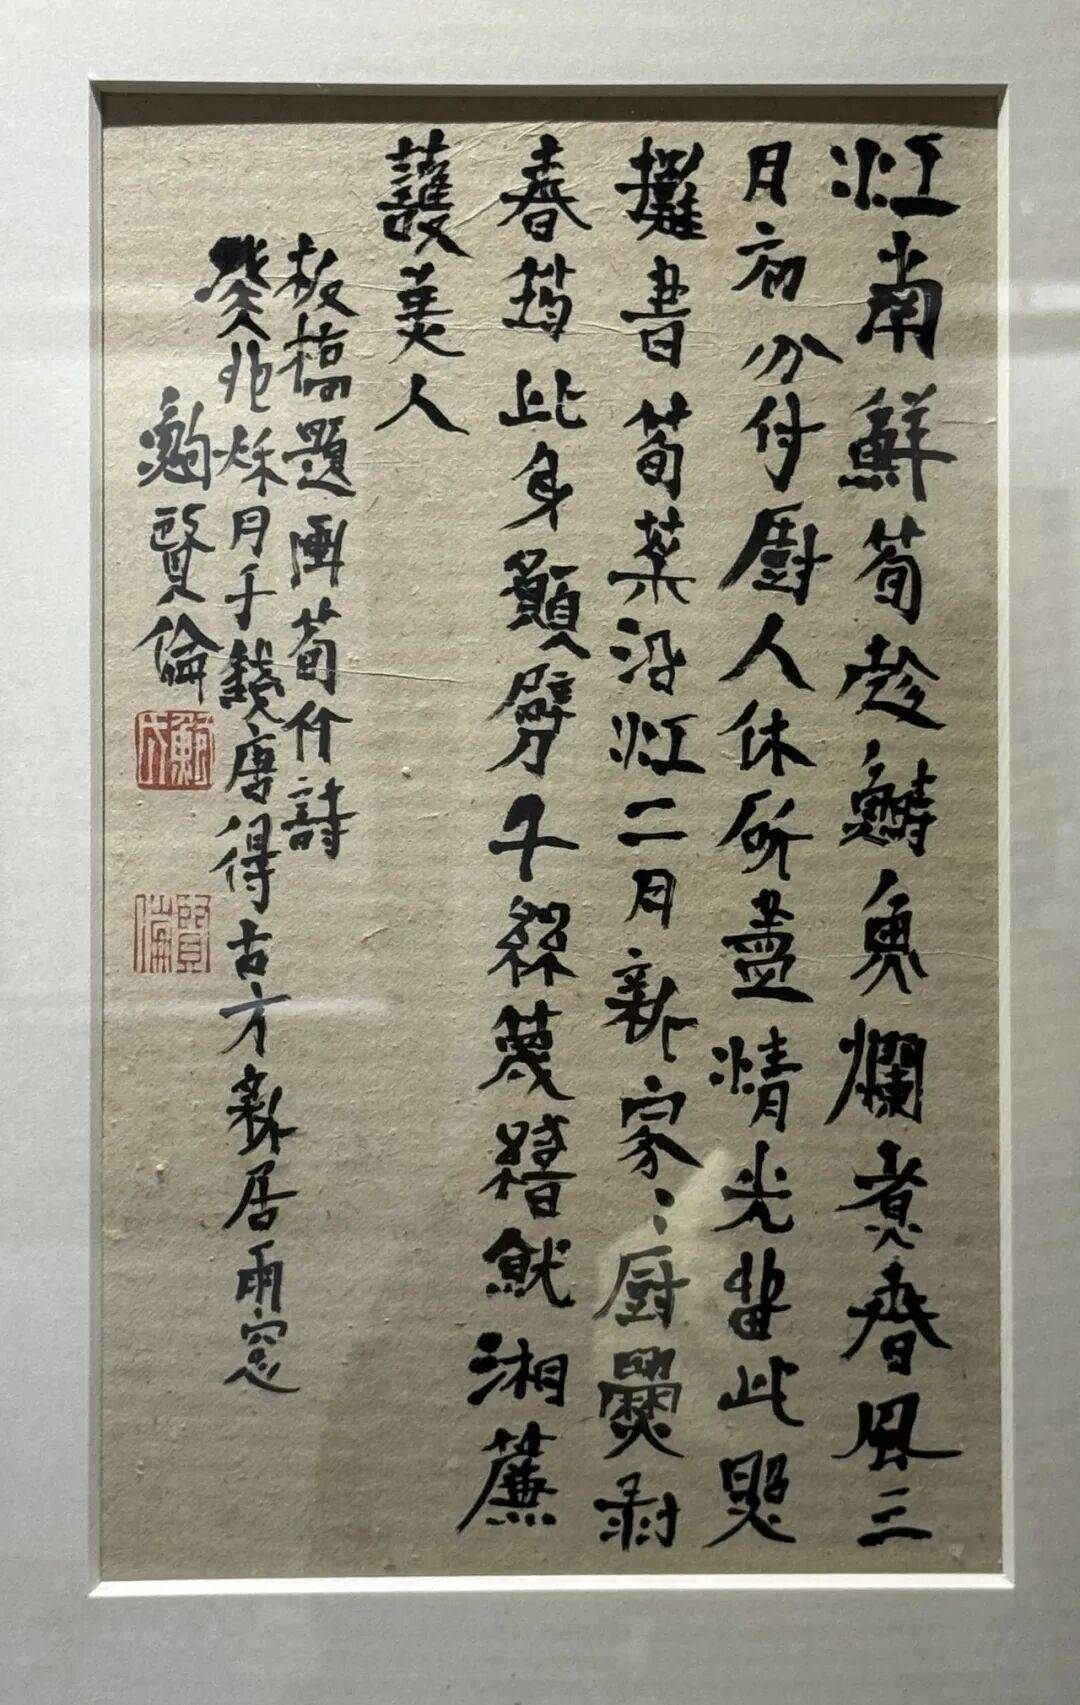 江南鮮筍趁鰣魚爛煮春風三
月初分付廚人休斫盡清光留此照
攤書筍菜沿江二月新家〻厨爨剥
春筠此身願劈千絲篾織就湘簾
護美人
板橋題画筍竹詩
癸卯秋月于錢唐得古方新居雨窓
賢倫
賢倫